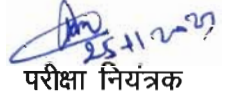 25/11/2021
परीक्षा नियंत्रक